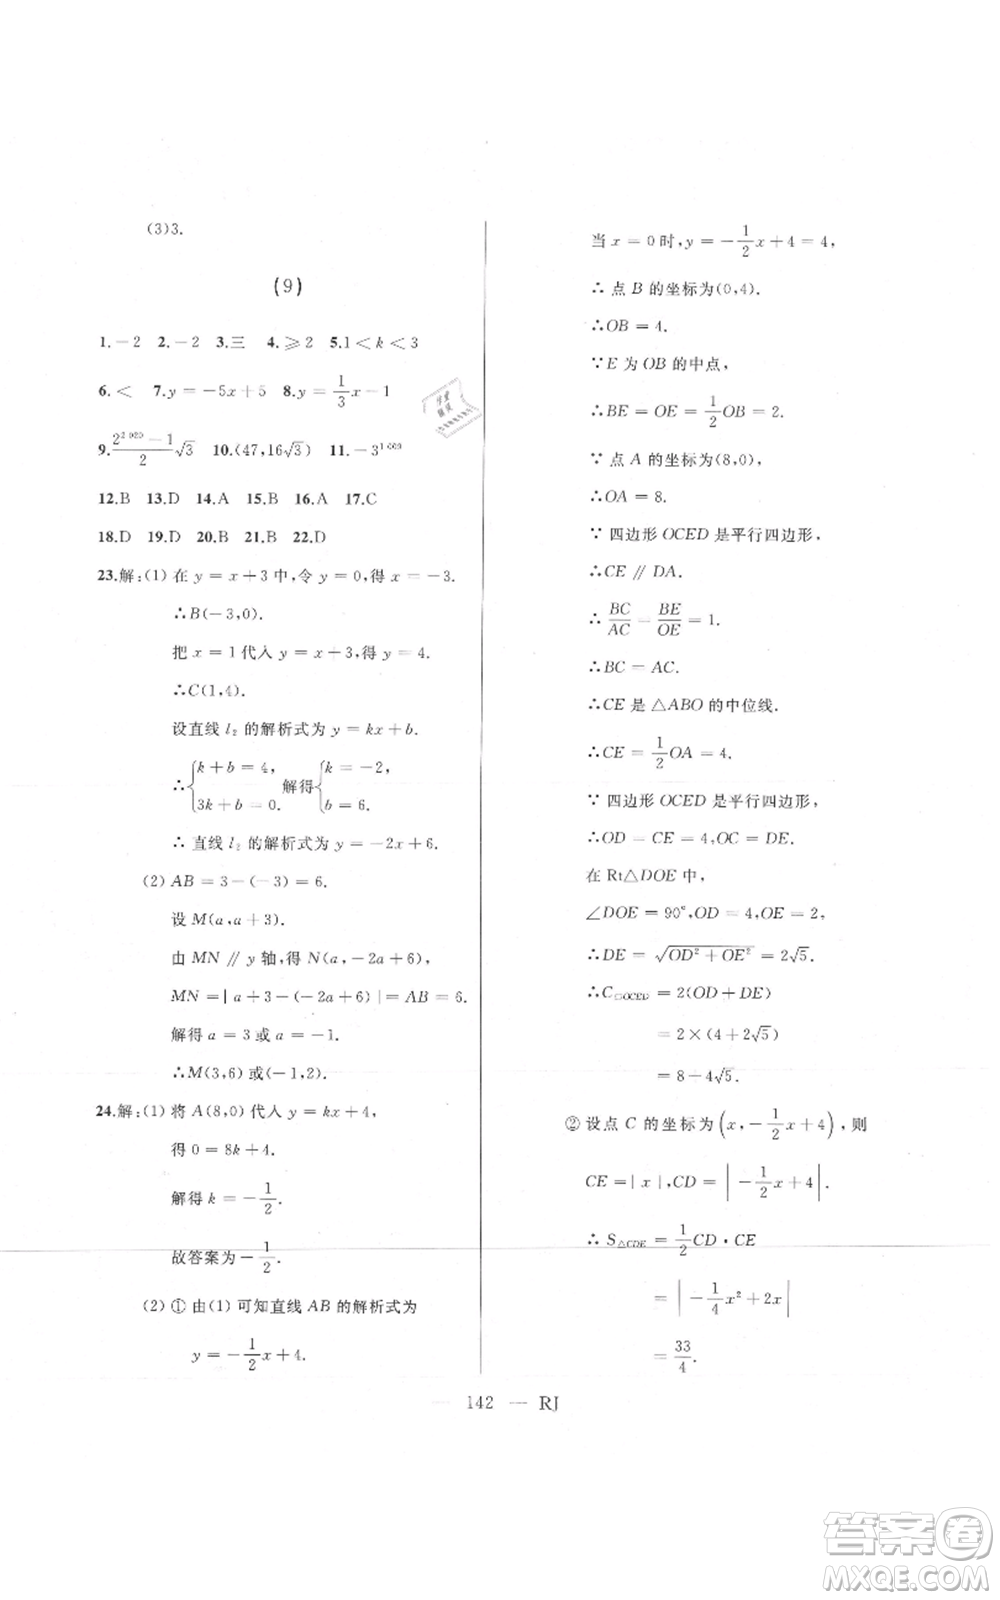 (3)3.
(9)
1.－2 2.－2 3.三 4.⩾2 5.1＜k＜3
6.＜ 7.y＝－5x＋5 8.y＝1/3x－1
10.(47,16√3)
12.B 13.D 14.A 15.B 16.A 17.C
18.D 19.D 20.B 21.B 22.D
23.解:(1)在 y＝x＋3中,令 y＝0,得 x＝－3.
∴B(－3,0).
把 x＝1代入 y＝x＋3,得 y＝4.
∴C(1,4).
设直线 l₂ 的解析式为 y＝kx＋b.
∴{k＋b＝4, 3k＋b＝0. 解得{k＝－2, b＝6.
∴直线 l₂ 的解析式为 y＝－2x＋6.
(2)AB＝3－(－3)＝6.
设 M(a,a＋3).
由 MN∥y轴,得 N(a,－2a＋6),
MN＝|a＋3－(－2a＋6)|＝AB＝6.
解得 a＝3或 a＝－1.
∴M(3,6)或(－1,2).
24.解:(1)将 A(8,0)代入 y＝kx＋4,
得 0＝8k＋4.
解得 k＝－1/2.
故答案为－1/2.
(2)①由(1)可知直线 AB 的解析式为
y＝－1/2x＋4.
当 x＝0时,y＝－1/2x＋4＝4,
∴点 B 的坐标为(0,4).
∴OB＝4.
∵E 为 OB 的中点,
∴BE＝OE＝1/2OB＝2.
∵点 A 的坐标为(8,0),
∴OA＝8.
∵四边形 OCED 是平行四边形,
∴CE∥DA.
∴BC/AC＝BE/OE＝1.
∴BC＝AC.
∴CE 是△ABO 的中位线.
∴CE＝1/2OA＝4.
∵四边形 OCED 是平行四边形,
∴OD＝CE＝4,OC＝DE.
在 Rt△DOE 中,
∠DOE＝90°,OD＝4,OE＝2,
∴DE＝√(OD²＋OE²)＝2√5.
∴C▱OCED＝2(OD＋DE)
＝2×(4＋2√5)
＝8＋4√5.
②设点 C 的坐标为(x,－1/2x＋4),则
CE＝|x|,CD＝|－1/2x＋4|.
∴S△CDE＝1/2CD·CE
＝|－1/4x²＋2x|
＝33/4.
— 142 — RJ
答案卷
MXQE.COM